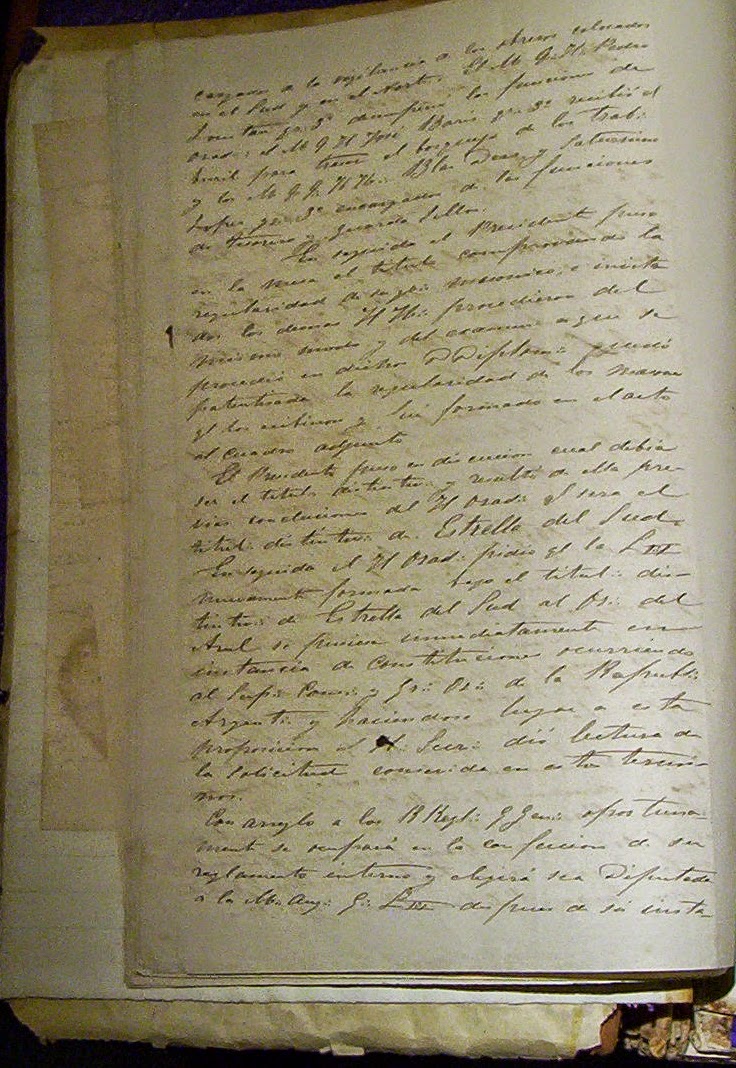 cargados de la vigilancia a los obreros colocados
en el Sud y en el Norte. El M Q. H. Pedro
gr. 3º desempeñó las funciones de
Orad∴ el M Q H José gr∴ 3º recibió el
buril para trazar el bosquejo de los trab∴
y los M. Q. Q. H H∴ Blas y Saturnino
Lopez gr∴ 3º encargados de las funciones
de Tesorero y Guarda Sellos.
En seguida el Presidente puso
en la mesa el titulo comprovando la
regularidad de su gr∴ masonico, e invita
dos los demas H Hh∴ procedieron del
mismo modo y del examen a que se
procedió en dichos D Diplom∴ quedó
patentizada la regularidad de los nuevos
formado en el acto
al cuadro adjunto
El Presidente puso en discucion cual debia
ser el titulo distintivo y resultó de ella pre-
vias conclusiones del H Orad∴ qe sera el
titul∴ distintivo∴ de Estrella del Sud.
En seguida el H Orad∴ pidió qe la L
nuevamente formada bajo el titul∴ dis-
tintiv∴ de Estrella del Sud al Or∴ del
Azul se pusiera inmediatamente en
instancia de constituciones ocurriendo
al Sup∴ Cons∴ y Gr∴ Or∴ de la Republi∴
Argent∴ y haciendose lugar a esta
proposicion el H∴ Secr∴ dió lectura de
la solicitud concevida en estos termi-
nos.
Con arreglo a los R Regl∴ G Gen∴ oportuna-
mente se ocupará en la confeccion de su
reglamento interno y elegirá sea Diputado
a la M∴ Aug∴ G∴ L despues de su insta-